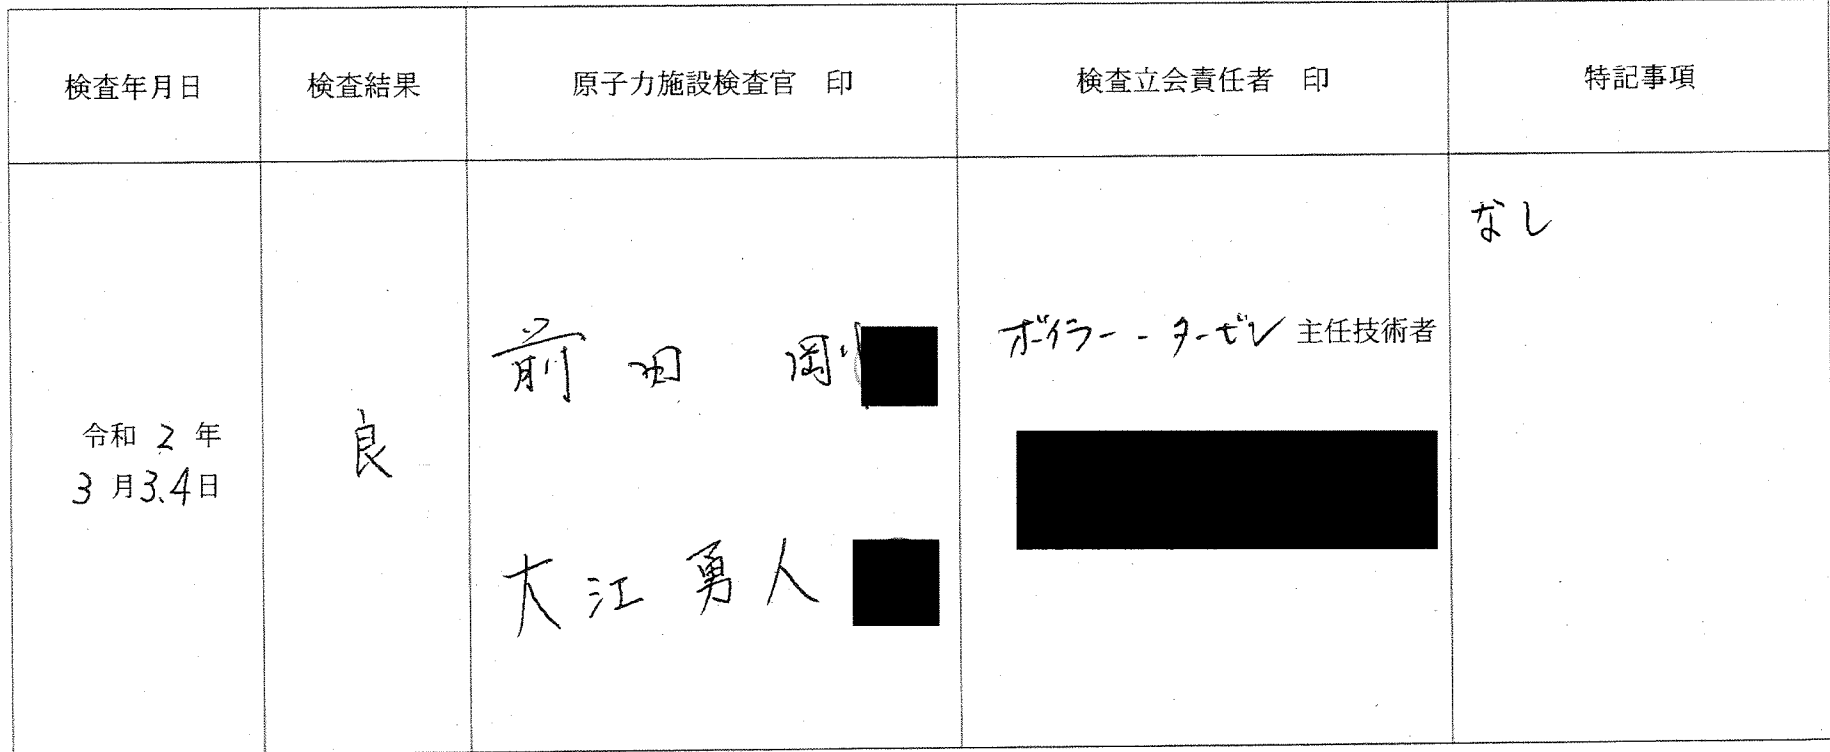 検査年月日
検査結果
原子力施設検査官 印
検査立会責任者 印
特記事項
令和 2 年
3 月3、4日
良
前田 剛
大江 勇人
ボイラー・タービン 主任技術者
なし